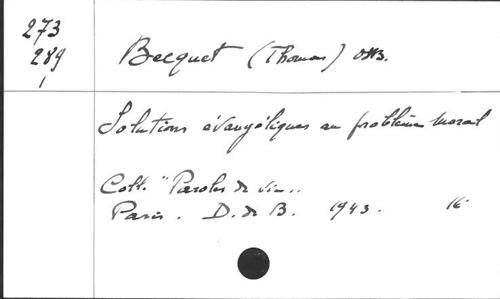 273
289
1
Becquet (Thomas) OSB.
Solutions évangéliques au problème moral
Coll. "Paroles de vie..
Paris. D. de B. 1943. 16°